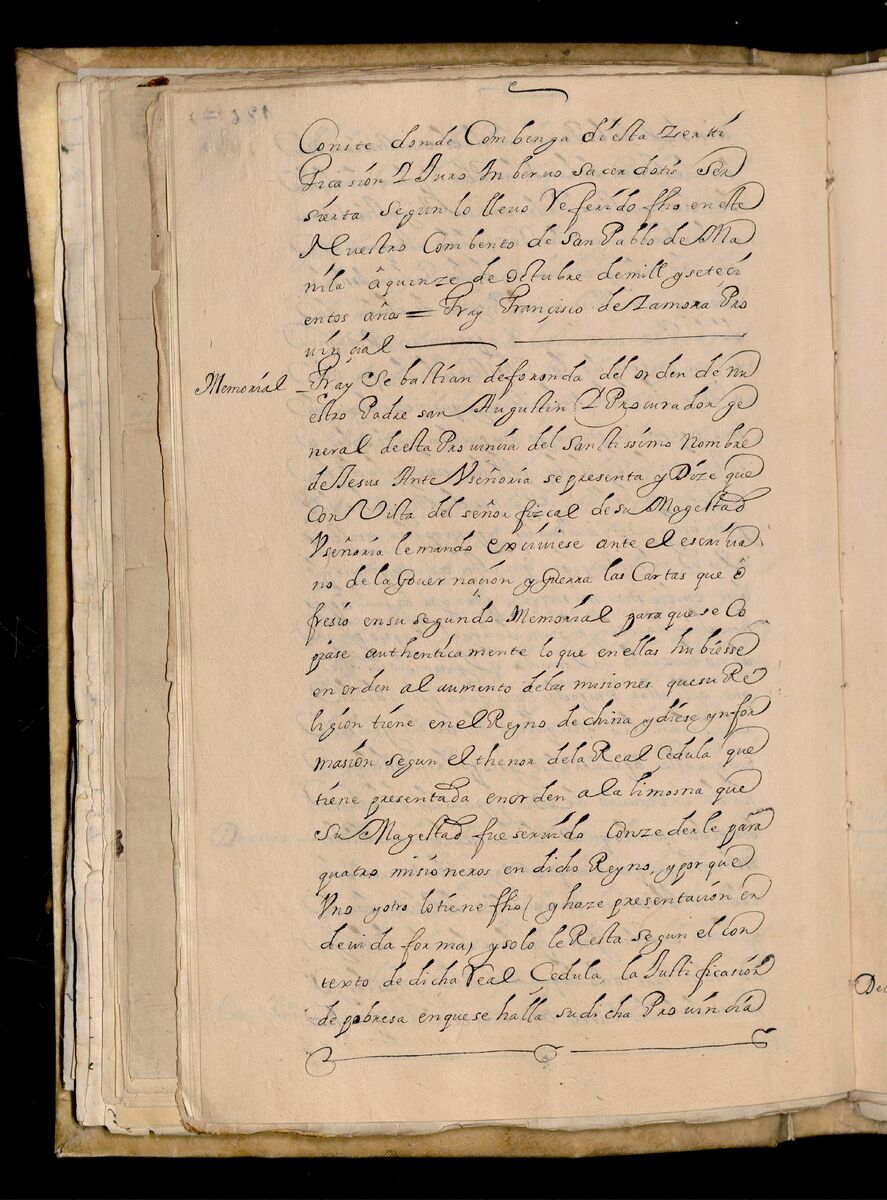 Conste donde Combenga di esta Zerti
ficasion Y Juro In beruo sacerdotis Ser
sierta segun lo lleuo Referido fho en este
Nuestro Combento de San Pablo de Ma
nila â quinze de Octubre de mill y seteci
entos años = Fray Françisco de Zamora Pro
uinçial
Memorial
Fray Sebastian de foronda del orden de nu
estro Padre san Augustin Y Procurador ge
neral de esta Prouincia del Santissimo Nombre
de Jesus Ante Vseñoria se presenta y Dize que
Con Vista del señor fizcal de su Magestad
Vseñoria le mando exciuiese ante el escriua
no de la Gouernaçion y Guerra las Cartas que ô
fresio en su segundo Memorial para que se Co
piase authenticamente lo que en ellas hubiesse
en orden al aumento de las misiones que su Re
ligion tiene en el Reyno de china y diese ynfor
masion segun el thenor de la Real Cedula que
tiene presentada en orden a la limosna que
Su Magestad fue seruido Conzederle para
quatro misioneros en dicho Reyno, y porque
Vno y otro lo tiene fho (. y haze presentacion en
deuida forma) y solo le Resta segun el con
texto de dicha Real Cedula, la Justificasion
de pobresa en que se halla su dicha Prouincia